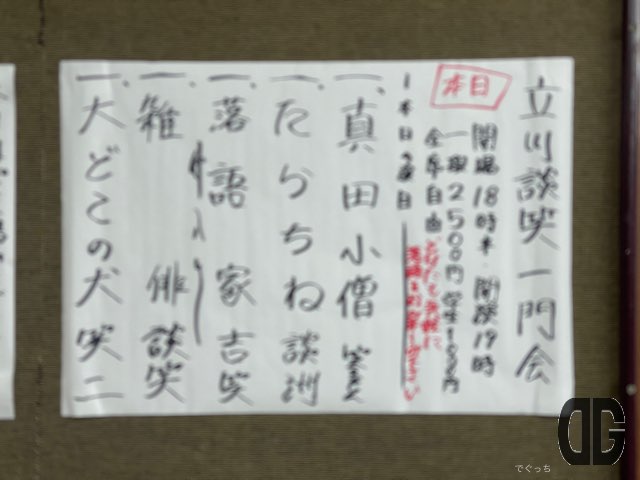 立川談笑一門会
開場18時半 開演19時
一般2500円 学生1000円
全席自由
本日
どなたでもお気軽に
一本日の演目
一、真田小僧 笑えもん
一、たらちね 談洲
一、落語家 吉笑
仲入り
一、雑俳 談笑
一、大どこの犬 笑二
でぐっち
DG